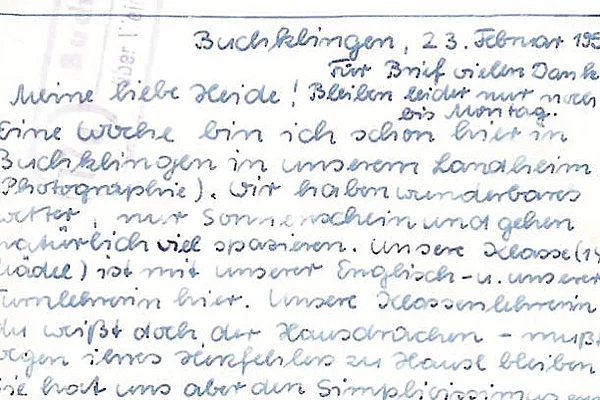 Buchklingen, 23. Februar 195
Für Brief vielen Dank
Meine liebe Heide! Bleiben leider nur noch
bis Montag.
Eine Woche bin ich schon hier in
Buchklingen in unserem Landheim
(Photographie). Wir haben wunderbares
Wetter, nur Sonnenschein und gehen
natürlich viel spazieren. Unsere Klasse (14
Mädel) ist mit unserer Englisch- u. unserer
Turnlehrerin hier. Unsere Klassenlehrerin
du weißt doch der Hausdrachen - mußt
wegen ihres Herzfehlers zu Hause bleiben
Sie hat uns aber den Simplicissimus